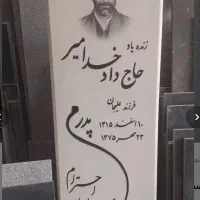 زنده یاد
خدامیر
حاج داد
فرزند علیجان
۱۰ اسفند ۱۳۱۵
۲۳ مهر ۱۳۷۵
پدرم
احترام